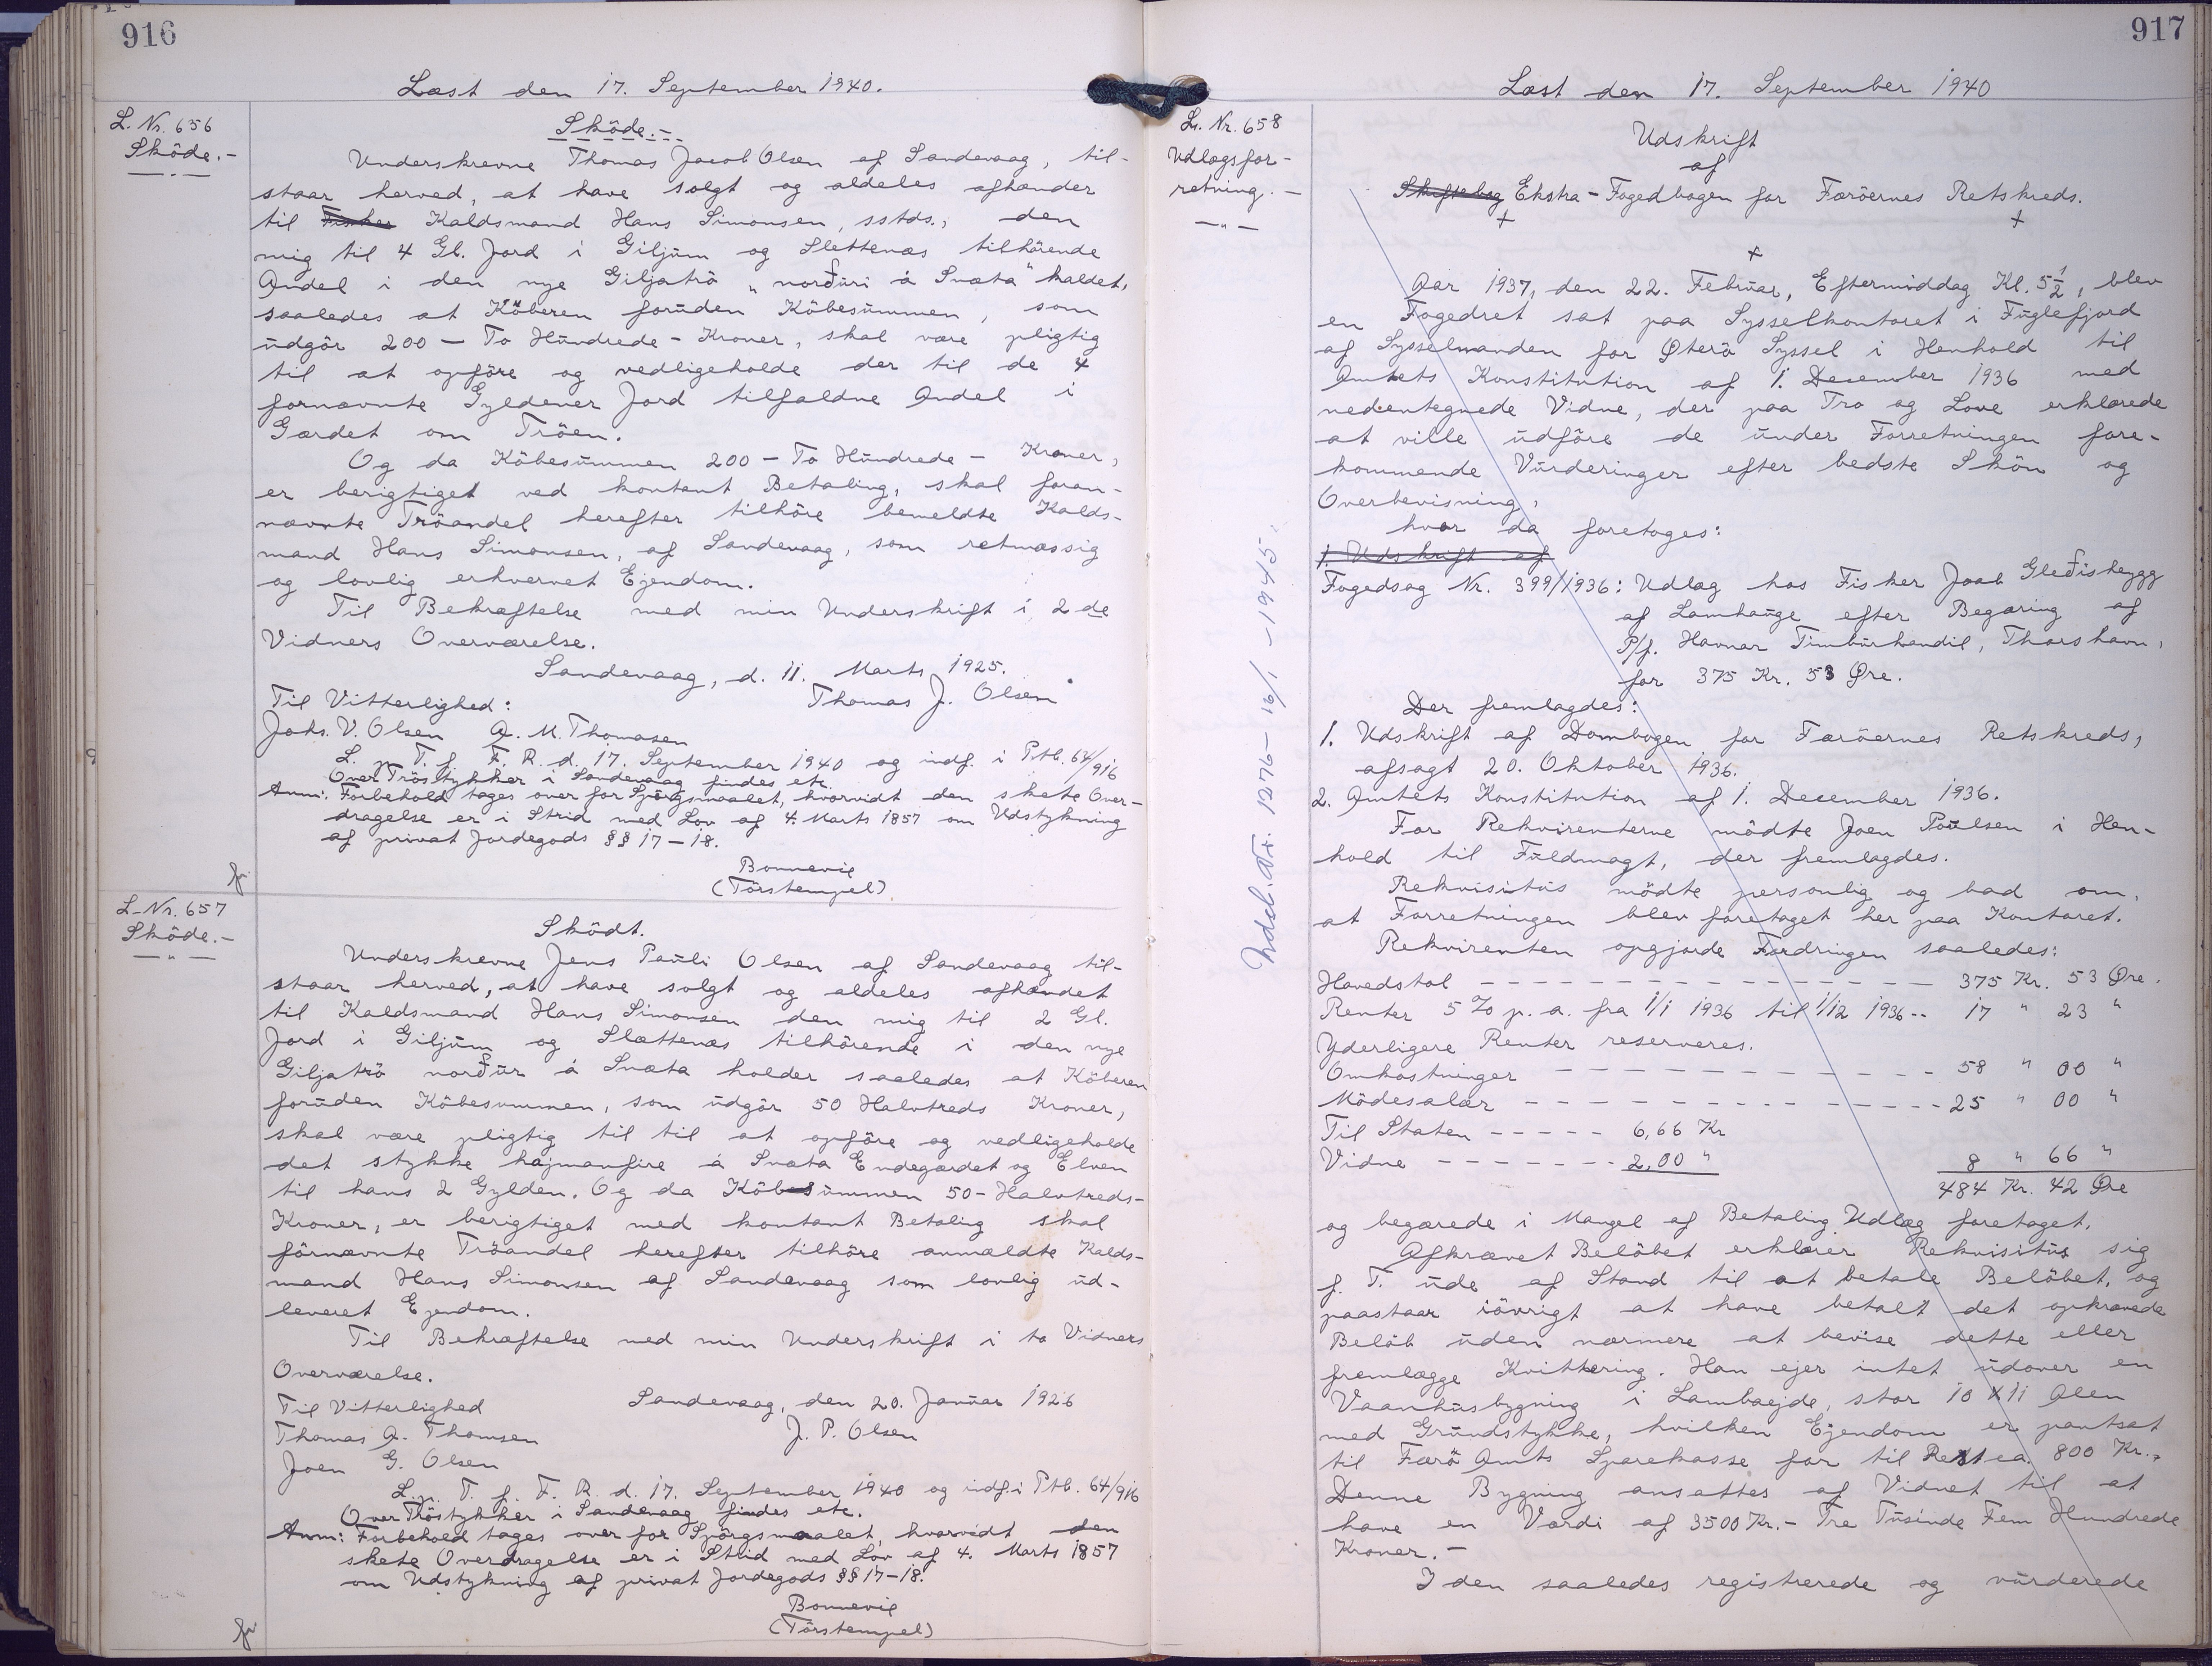 916
Læst den 17. September 1940.
L. Nr. 656
Sköde.-
Sköde.-
Underskrevne Thomas Jacob Olsen af Sandevaag, til-
staar herved, at have solgt og aldeles afhænder
til Fisker Kaldsmand Hans Simonsen, sstds., den
mig til 4 Gl. Jord i Giljum og Slettenæs tilhörende
Andel i den nye Giljatrö "norðuri á Snæta" kaldet,
saaledes at Köberen foruden Köbesummen, som
udgör 200 - To Hundrede - Kroner, skal være pligtig
til at opföre og vedligeholde der til de 4
fornævnte Gyldener Jord tilfaldne Andel i
Gærdet om Tröen.
Og da Köbesummen 200 - To Hundrede - Kroner,
er berigtiget ved kontant Betaling, skal foran-
nævnte Tröandel herefter tilhöre bemeldte Kalds-
mand Hans Simonsen, af Sandevaag, som retmæssig
og lovlig erhvervet Ejendom.
Til Bekræftelse med min Underskrift i 2de
Vidners Overværelse.
Sandevaag, d. 11. Marts 1925.
Til Vitterlighed: Thomas J. Olsen
Johs. V. Olsen A. M. Thomasen
L. p. T. f. F. R. d. 17. September 1940 og indf. i Ptb. 64/916
Over Tröstykker i Sandevaag findes etc.
Anm: Forbehold tages over for Spörgsmaalet, hvorvidt den skete Over-
dragelse er i Strid med Lov af 4. Marts 1857 om Udstykning
af privat Jordegods §§ 17-18.
Bonnevie
(Törstempel)
L-Nr. 657
Sköde.-
Sködt.
Underskrevne Jens Pauli Olsen af Sandevaag til-
staar herved, at have solgt og aldeles afhændet
til Kaldsmand Hans Simonsen den mig til 2 Gl.
Jord i Giljum og Slættenæs tilhörende i den nye
Giljatrö norður á Snæta holder saaledes at Köberen
foruden Köbesummen, som udgör 50 Halvtreds Kroner,
skal være pligtig til til at opföre og vedligeholde
det stykke hajmanfire á Snæta Endegærdet og Elven
til hans 2 Gylden. Og da Köbesummen 50-Halvtreds-
Kroner, er berigtiget med kontant Betaling skal
förnævnte Tröandel herefter tilhöre anmældte Kalds-
mand Hans Simonsen af Sandevaag som lovlig ud-
leveret Ejendom.
Til Bekræftelse med min Underskrift i to Vidners
Overværelse.
Til Vitterlighed Sandevaag, den 20. Januar 1926
Thomas A. Thomsen J. P. Olsen
Joen G. Olsen
L. p. T. f. F. R. d. 17. September 1940 og indf. i Ptb. 64/916
Over Tröstykker i Sandevaag findes etc.
Anm: Forbehold tages over for Spörgsmaalet, hvorvidt den
skete Overdragelse er i Strid med Lov af 4. Marts 1857
om Udstykning af privat Jordegods §§ 17-18.
Bonnevie
(Törstempel)
917
Læst den 17. September 1940
L. Nr. 658
Udlægsfor-
retning.-
Udskrift
af
Skiftebog Ekstra-Fogedbogen for Færöernes Retskreds.
Aar 1937, den 22. Februar, Eftermiddag Kl. 5 1/2, blev
en Fogedret sat paa Sysselkontoret i Fuglefjord
af Sysselmanden for Østerö Syssel i Henhold til
Amtets Konstitution af 1. December 1936 med
nedentegnede Vidne, der paa Tro og Love erklærede
at ville udföre de under Forretningen fore-
kommende Vurderinger efter bedste Skön og
Overbevisning,
hvor da foretoges:
1. Udskrift af
Fogedsag Nr. 399/1936: Udlæg hos Fisker Joab Gleðisheygg
af Lamhauge efter Begæring af
P/f. Havnar Timburhandil, Thorshavn,
for 375 Kr. 53 Øre.
Der fremlagdes:
1. Udskrift af Dombogen for Færöernes Retskreds,
afsagt 20. Oktober 1936.
2. Amtets Konstitution af 1. December 1936.
For Rekvirenterne mödte Joen Poulsen i Hen-
hold til Fuldmagt, der fremlagdes.
Rekvisitus mödte personlig og bad om,
at Forretningen blev foretaget her paa Kontoret.
Rekvirenten opgjorde Fordringen saaledes:
Hovedstol - - - 375 Kr. 53 Øre.
Renter 5 % p. a. fra 1/1 1936 til 1/12 1936 -- 17 " 23 "
Yderligere Renter reserveres.
Omkostninger - - - 58 " 00 "
Mödesalær - - - 25 " 00 "
Til Staten - - - 6,66 Kr
Vidne - - - 2,00 " 8 " 66 "
484 Kr. 42 Øre
og begærede i Mangel af Betaling Udlæg foretaget.
Afkrævet Belöbet erklærer Rekvisitus sig
f. T. ude af Stand til at betale Belöbet, og
paastaar iövrigt at have betalt det opkrævede
Belöb uden nærmere at bevise dette eller
fremlægge Kvittering. Han ejer intet udover en
Vaanhusbygning i Lambaejde, stor 10 x 11 Alen
med Grundstykke, hvilken Ejendom er pantsat
til Færö Amts Sparekasse for til Rest ca. 800 Kr.,
Denne Bygning ansattes af Vidnet til at
have en Værdi af 3500 Kr. - Tre Tusinde Fem Hundrede
Kroner.-
I den saaledes registrerede og vurderede
1276 - 16/1 - 1945.